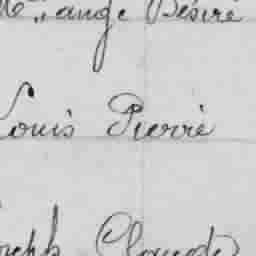 ange Désiré
Louis Pierre
Joseph Claude